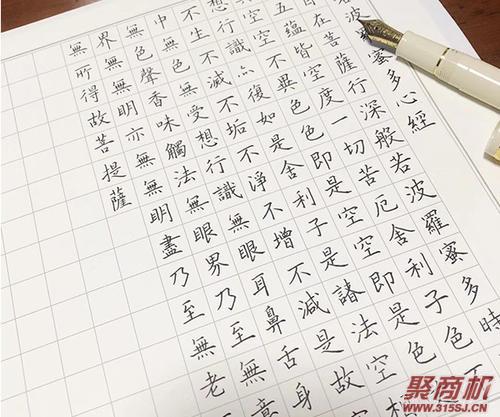 波蜜多心經
在菩薩行深般若波羅蜜多時
五蘊皆空度一切苦厄舍利子色
空空不異色色即是空空即是色
想行識亦復如是舍利子是諸法空
不生不滅不垢不淨不增不減是故空
中無色無受想行識無眼耳鼻舌身
無色聲香味觸法無眼界乃至無意
界無無明亦無無明盡乃至無老
無所得故菩提薩
聚商机
WWW.315SJ.COM